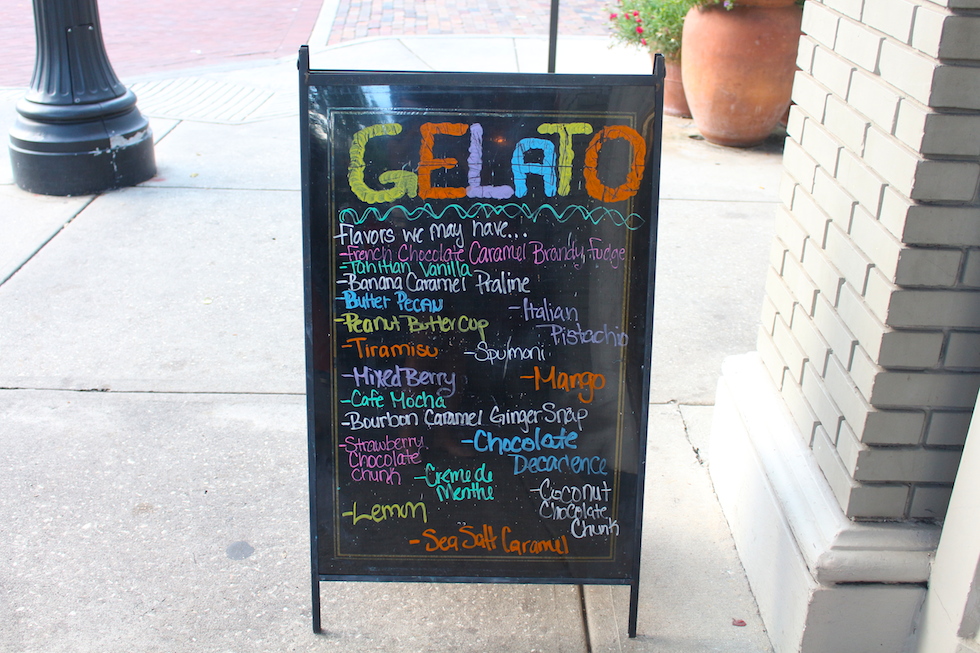 GELATO
Flavors we may have...
-French Chocolate Caramel Brandy Fudge
-Tahitian Vanilla
-Banana Caramel Praline
-Butter Pecan
-Italian
Pistachio
-Peanut Butter Cup
-Tiramisu
-Spumoni
-Mixed Berry
-Mango
-Cafe Mocha
-Bourbon Caramel Ginger Snap
-Strawberry
Chocolate
Chunk
-Chocolate
Decadence
-Creme de
Menthe
-Coconut
Chocolate
Chunk
-Lemon
-Sea Salt Caramel